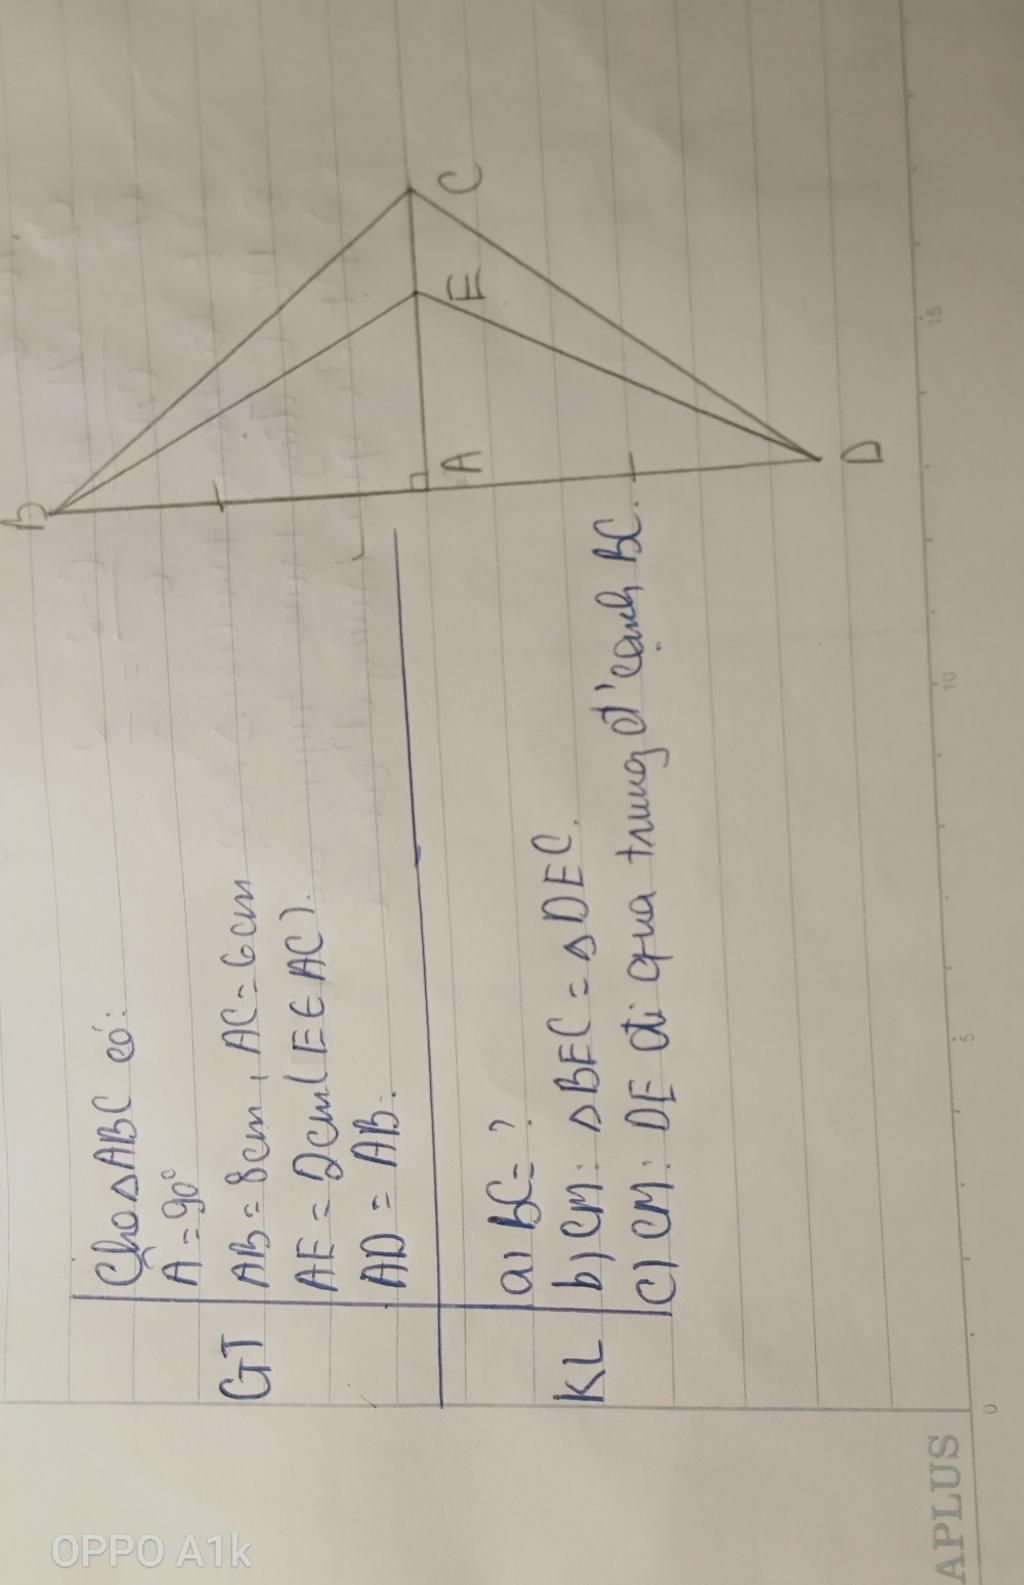 Cho △ABC có:
A = 90°
GT
AB = 8cm, AC = 6cm
AE = 2cm (E ∈ AC).
AD = AB.
a) BC = ?
KL
b) CM: △BEC = △DEC.
c) CM: DE đi qua trung đ' cạnh BC.
B
A
E
C
D
0
5
10
15
APLUS
OPPO A1k